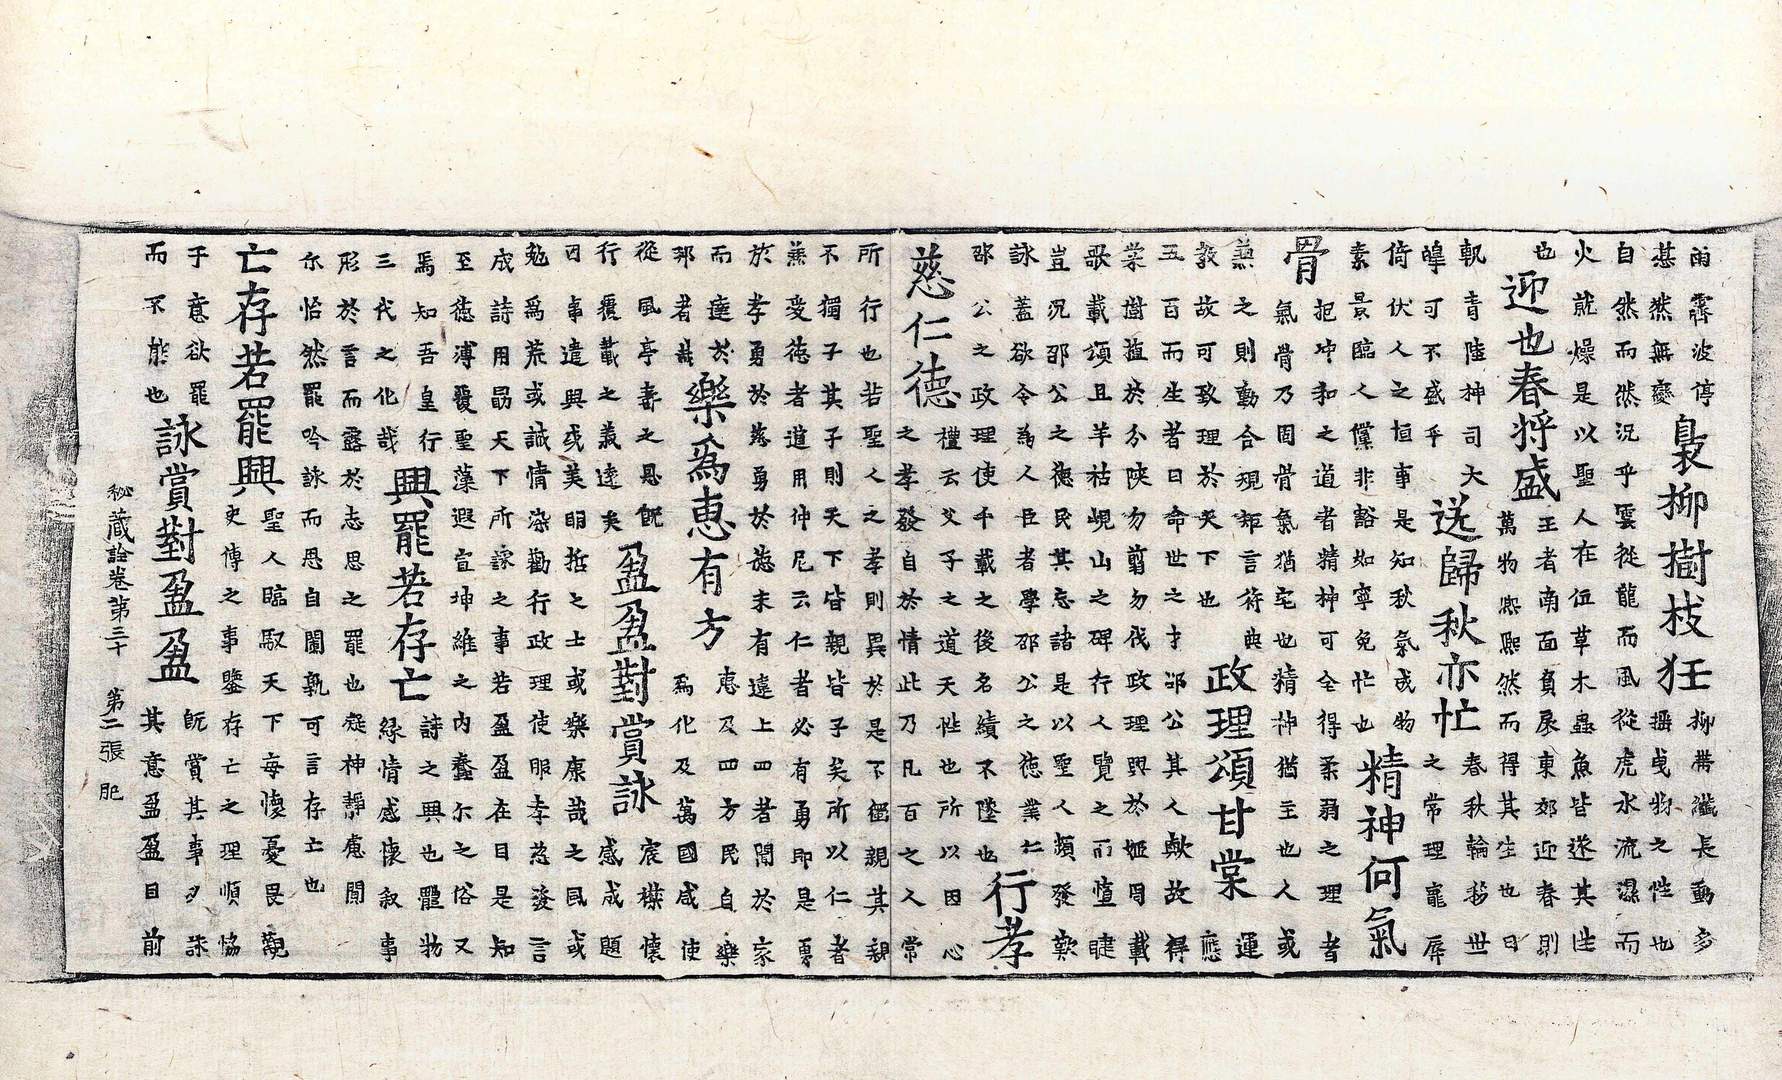 雨霽波停
湛然無變
裊柳樹枝狂
柳帶纖長動多
攝曳物之性也
自然而然況乎雲從龍而風從虎水流濕而
火就燥是以聖人在位草木蟲魚皆遂其性
也
迎也春將盛
王者南面負扆東郊迎春則
萬物熙熙然而得其生也日
軏青陸神司大
皥可不盛乎
送歸秋亦忙
春秋輪移世
之常理寵辱
倚伏人之恒事是知秋氣成物
素景臨人儻非豁如寧免忙也
精神何氣
骨
抱冲和之道者精神可全得柔弱之理者
氣骨乃固骨氣猶宅也精神猶主也人或
兼之則動合規矩言符典
教故可致理於天下也
政理頌甘棠
運
應
五百而生者曰命世之才邵公其人歟故得
棠樹植於分陝勿翦勿伐政理興於姬周載
歌載頌且羊祜峴山之碑行人覽之而墮睫
豈況邵公之德民其忘諸是以聖人頻發歎
詠蓋欲令為人臣者學邵公之德業仁
邵公之政理使千載之後名績不墜也
行孝
慈仁德
禮云父子之道天性也所以因心
之孝發自於情此乃凡百之人常
所行也若聖人之孝則異於是不獨親其親
不獨子其子則天下皆親皆子矣所以仁者
兼愛德者道用仲尼云仁者必有勇即是勇
於孝勇於慈勇於德未有遠上四者聞於家
而達於
邦君哉
樂為惠有方
惠及四方民自樂
為化及萬國咸使
從風亭毒之恩既
行覆載之義遠矣
盈盈對賞詠
宸襟懷
感成題
因事遣興或美明哲之士或樂康哉之風或
勉為荒或誡情染勸行政理使服孝慈發言
成詩用勗天下所詠之事若盈盈在目是知
至德溥覆聖藻遐宣坤維之內蠢尒之俗又
焉知吾皇行
三代之化哉
興罷若存亡
詩之興也體物
緣情感懷叙事
形於言而露於志思之罷也凝神靜慮閒
尒怡然罷吟詠而思自闌孰可言存亡也
亡存若罷興
聖人臨馭天下每懷憂畏觀
史傳之事鑒存亡之理順恊
于意欲罷
而不能也
詠賞對盈盈
既賞其事夕詠
其意盈盈目前
秘藏詮卷第三十　第二張　肥